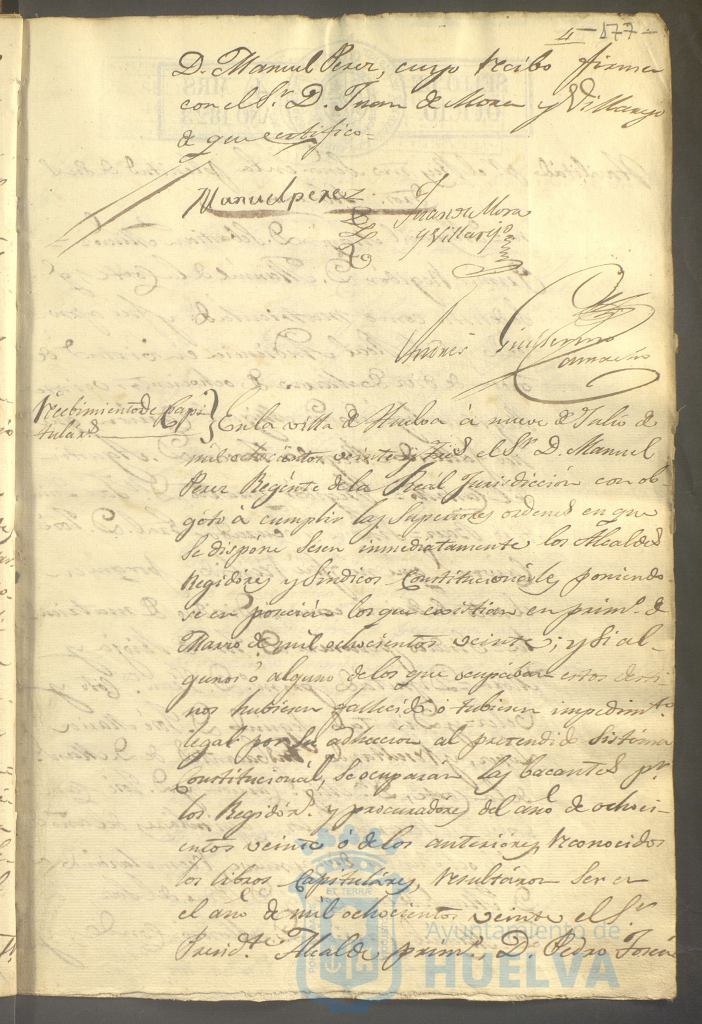 4 - 577 -
D. Manuel Perez, cuyo recibo firma
con el Sr. D. Juan de Mora y Villarejo
de que certifico=
Manuel perez
Juan de Mora
y Villarejo
Andres Guillermo
Camacho
Recibimiento de Capi-
tulars.
En la villa de Huelva à nueve de Julio de
mil ochocientos veinte y tres el Sr. D. Manuel
Perez Regente de la Real Jurisdiccion con ob-
geto à cumplir las Superiores ordenes en que
se dispone sesen inmediatamente los Alcaldes
Regidores y Sindicos Constitucionales, poniendo-
se en posecion los que existian en prim.º de
Marzo de mil ochocientos veinte; y si al-
gunos ó alguno de los que ocupaban estos desti-
nos hubiesen fallecido ó tubiesen impedimto.
legal por su adhecion al pretendido sistema
Constitucional, se ocuparan las bacantes pr.
los Regidors. y procuradores del año de ochoci-
entos veinte ó de los anteriores, reconocidos
los libros Capitulares, resultaron ser en
el año de mil ochocientos veinte el Sr.
Presidte. Alcalde primº. D. Pedro José
Ayuntamiento de
HUELVA